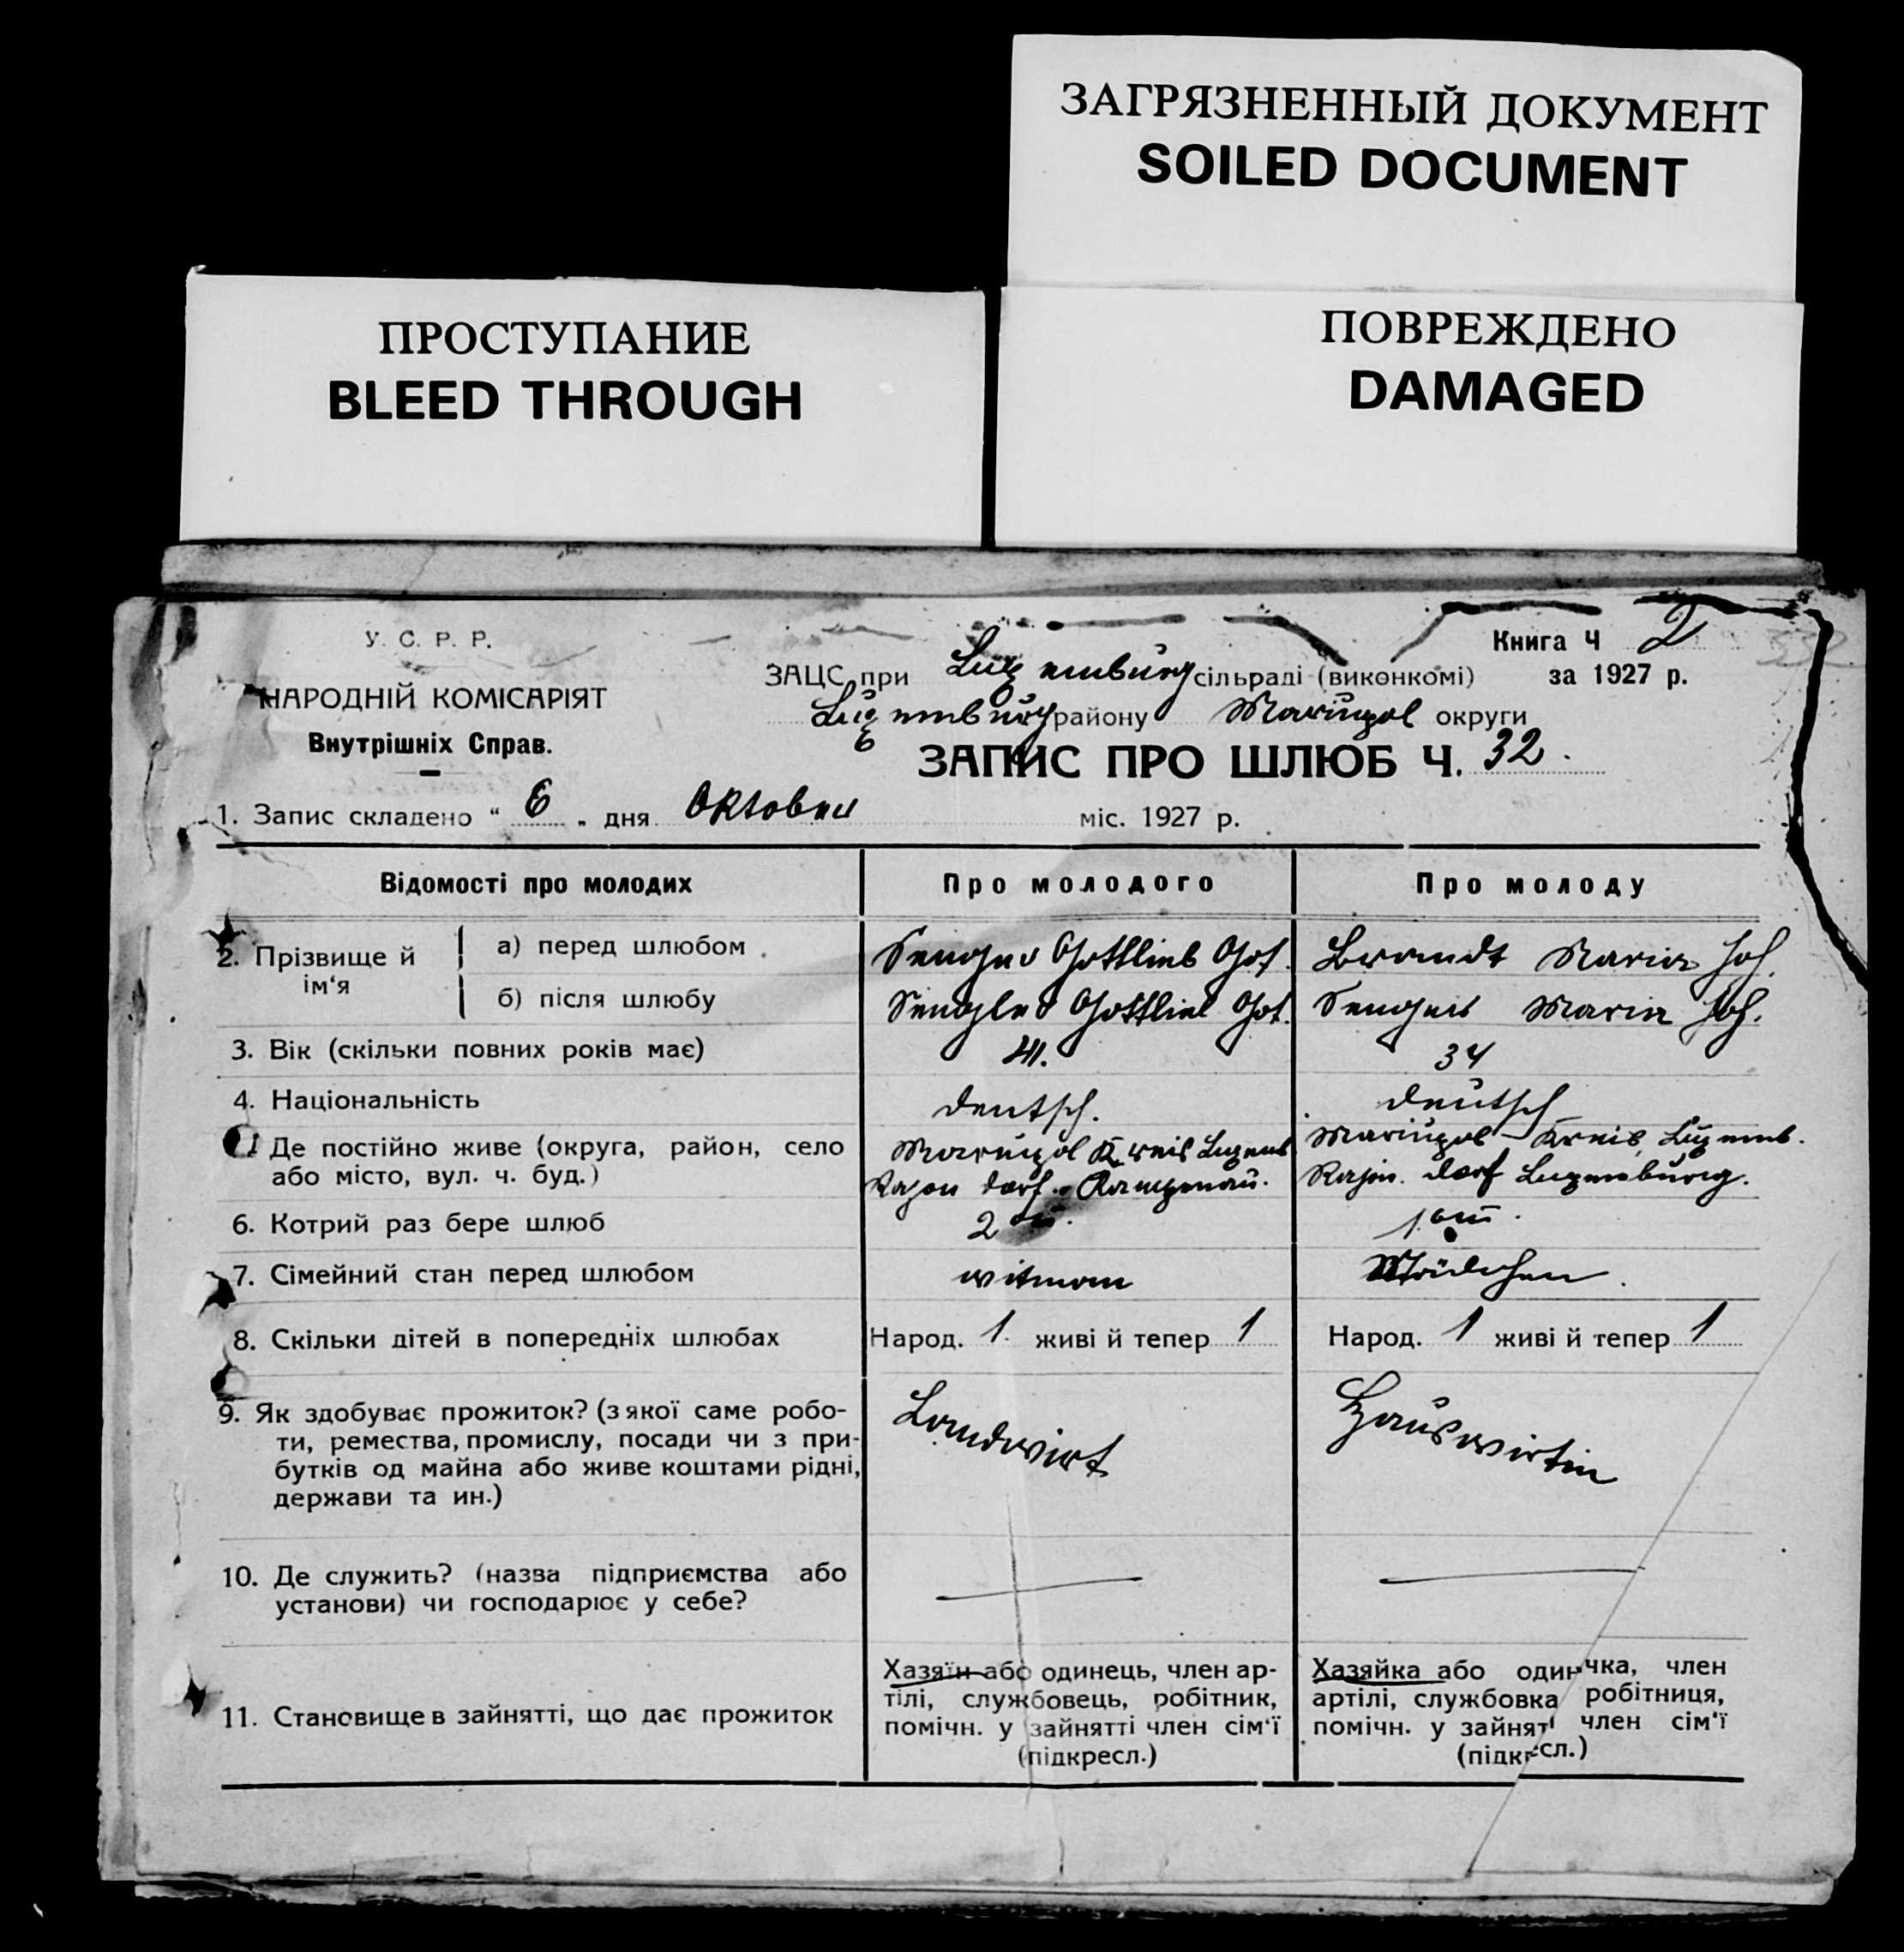 ЗАГРЯЗНЕННЫЙ ДОКУМЕНТ
SOILED DOCUMENT
ПРОСТУПАНИЕ
BLEED THROUGH
ПОВРЕЖДЕНО
DAMAGED
У. С. Р. Р.
НАРОДНІЙ КОМІСАРІЯТ
Внутрішніх Справ.
Книга Ч 2
за 1927 р.
ЗАЦС при Luxemburg сільраді (виконкомі)
Luxemburg району Mariupol округи
ЗАПИС ПРО ШЛЮБ Ч. 32.
1. Запис складено “ 6 „ дня Oktober міс. 1927 р.
Відомості про молодих Про молодого Про молоду
2. Прізвище й ім‘я
а) перед шлюбом. Gottlieb Got. Brandt Maria Joh.
б) після шлюбу Gottlieb Got. Maria Joh.
3. Вік (скільки повних років має) 41. 34
4. Національність deutsch. deutsch
Де постійно живе (округа, район, село
або місто, вул. ч. буд.)
Mariupol Kreis Luxemb
Rajon dorf. Kampenau.
Mariupol – Kreis, Luxemb.
Rajon. dorf Luxemburg.
6. Котрий раз бере шлюб 2 1
7. Сімейний стан перед шлюбом witman Mädchen.
8. Скільки дітей в попередніх шлюбах Народ. 1. живі й тепер 1 Народ. 1 живі й тепер 1
9. Як здобуває прожиток? (з якої саме робо-
ти, ремества, промислу, посади чи з при-
бутків од майна або живе коштами рідні,
держави та ин.)
Landwirt
Hauswirtin
10. Де служить? (назва підприємства або
установи) чи господарює у себе?
11. Становище в зайнятті, що дає прожиток
Хазяїн або одинець, член ар-
тілі, службовець, робітник,
помічн. у зайнятті член сім‘ї
(підкресл.)
Хазяйка або одиничка, член
артілі, службовка робітниця,
помічн. у зайнят член сім‘ї
(підкресл.)